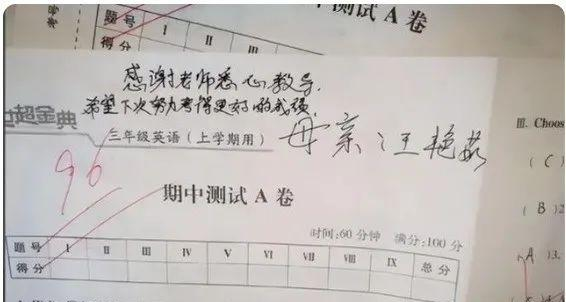 测试 A 卷
题号 I II III
得分
感谢老师悉心教导
希望下次努力考得更好的成绩
超金典
三年级英语(上学期用)
母亲汪艳茹
96
期中测试 A 卷
时间:60 分钟 满分:100 分
题号 I II III IV V VI VII VIII IX 总分
得分
III. Choos
( C )
( B )2
A )3.